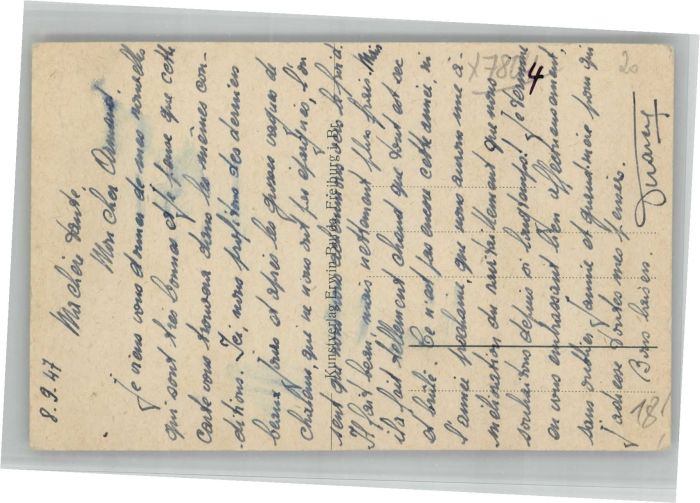 8.9.47
Ma chère tante
Mon cher Armand
Je viens vous donner de mes nouvelles
qui sont très bonnes et je pense que cette
carte vous trouvera dans les mêmes con-
ditions. Ici, nous profitons des derniers
beaux jours et après les grosses vagues de
chaleur, qui ne nous ont pas épargnées, l'on
sent que nous
Il fait beau, mais nettement plus frais. Mais
il a fait tellement chaud que tout est sec
et brûlé. Ce n'est pas encore cette année, ni
l'année prochaine, que nous aurons une a-
mélioration du ravitaillement que nous
souhaitons depuis si longtemps! Je termine
en vous embrassant bien affectueusement,
sans oublier Jamie et grand'mère pour qui
j'adresse toutes mes pensées.
Bons baisers.
Kunstverlag Erwin Burda, Freiburg i. Br.
X780
4
20
18!